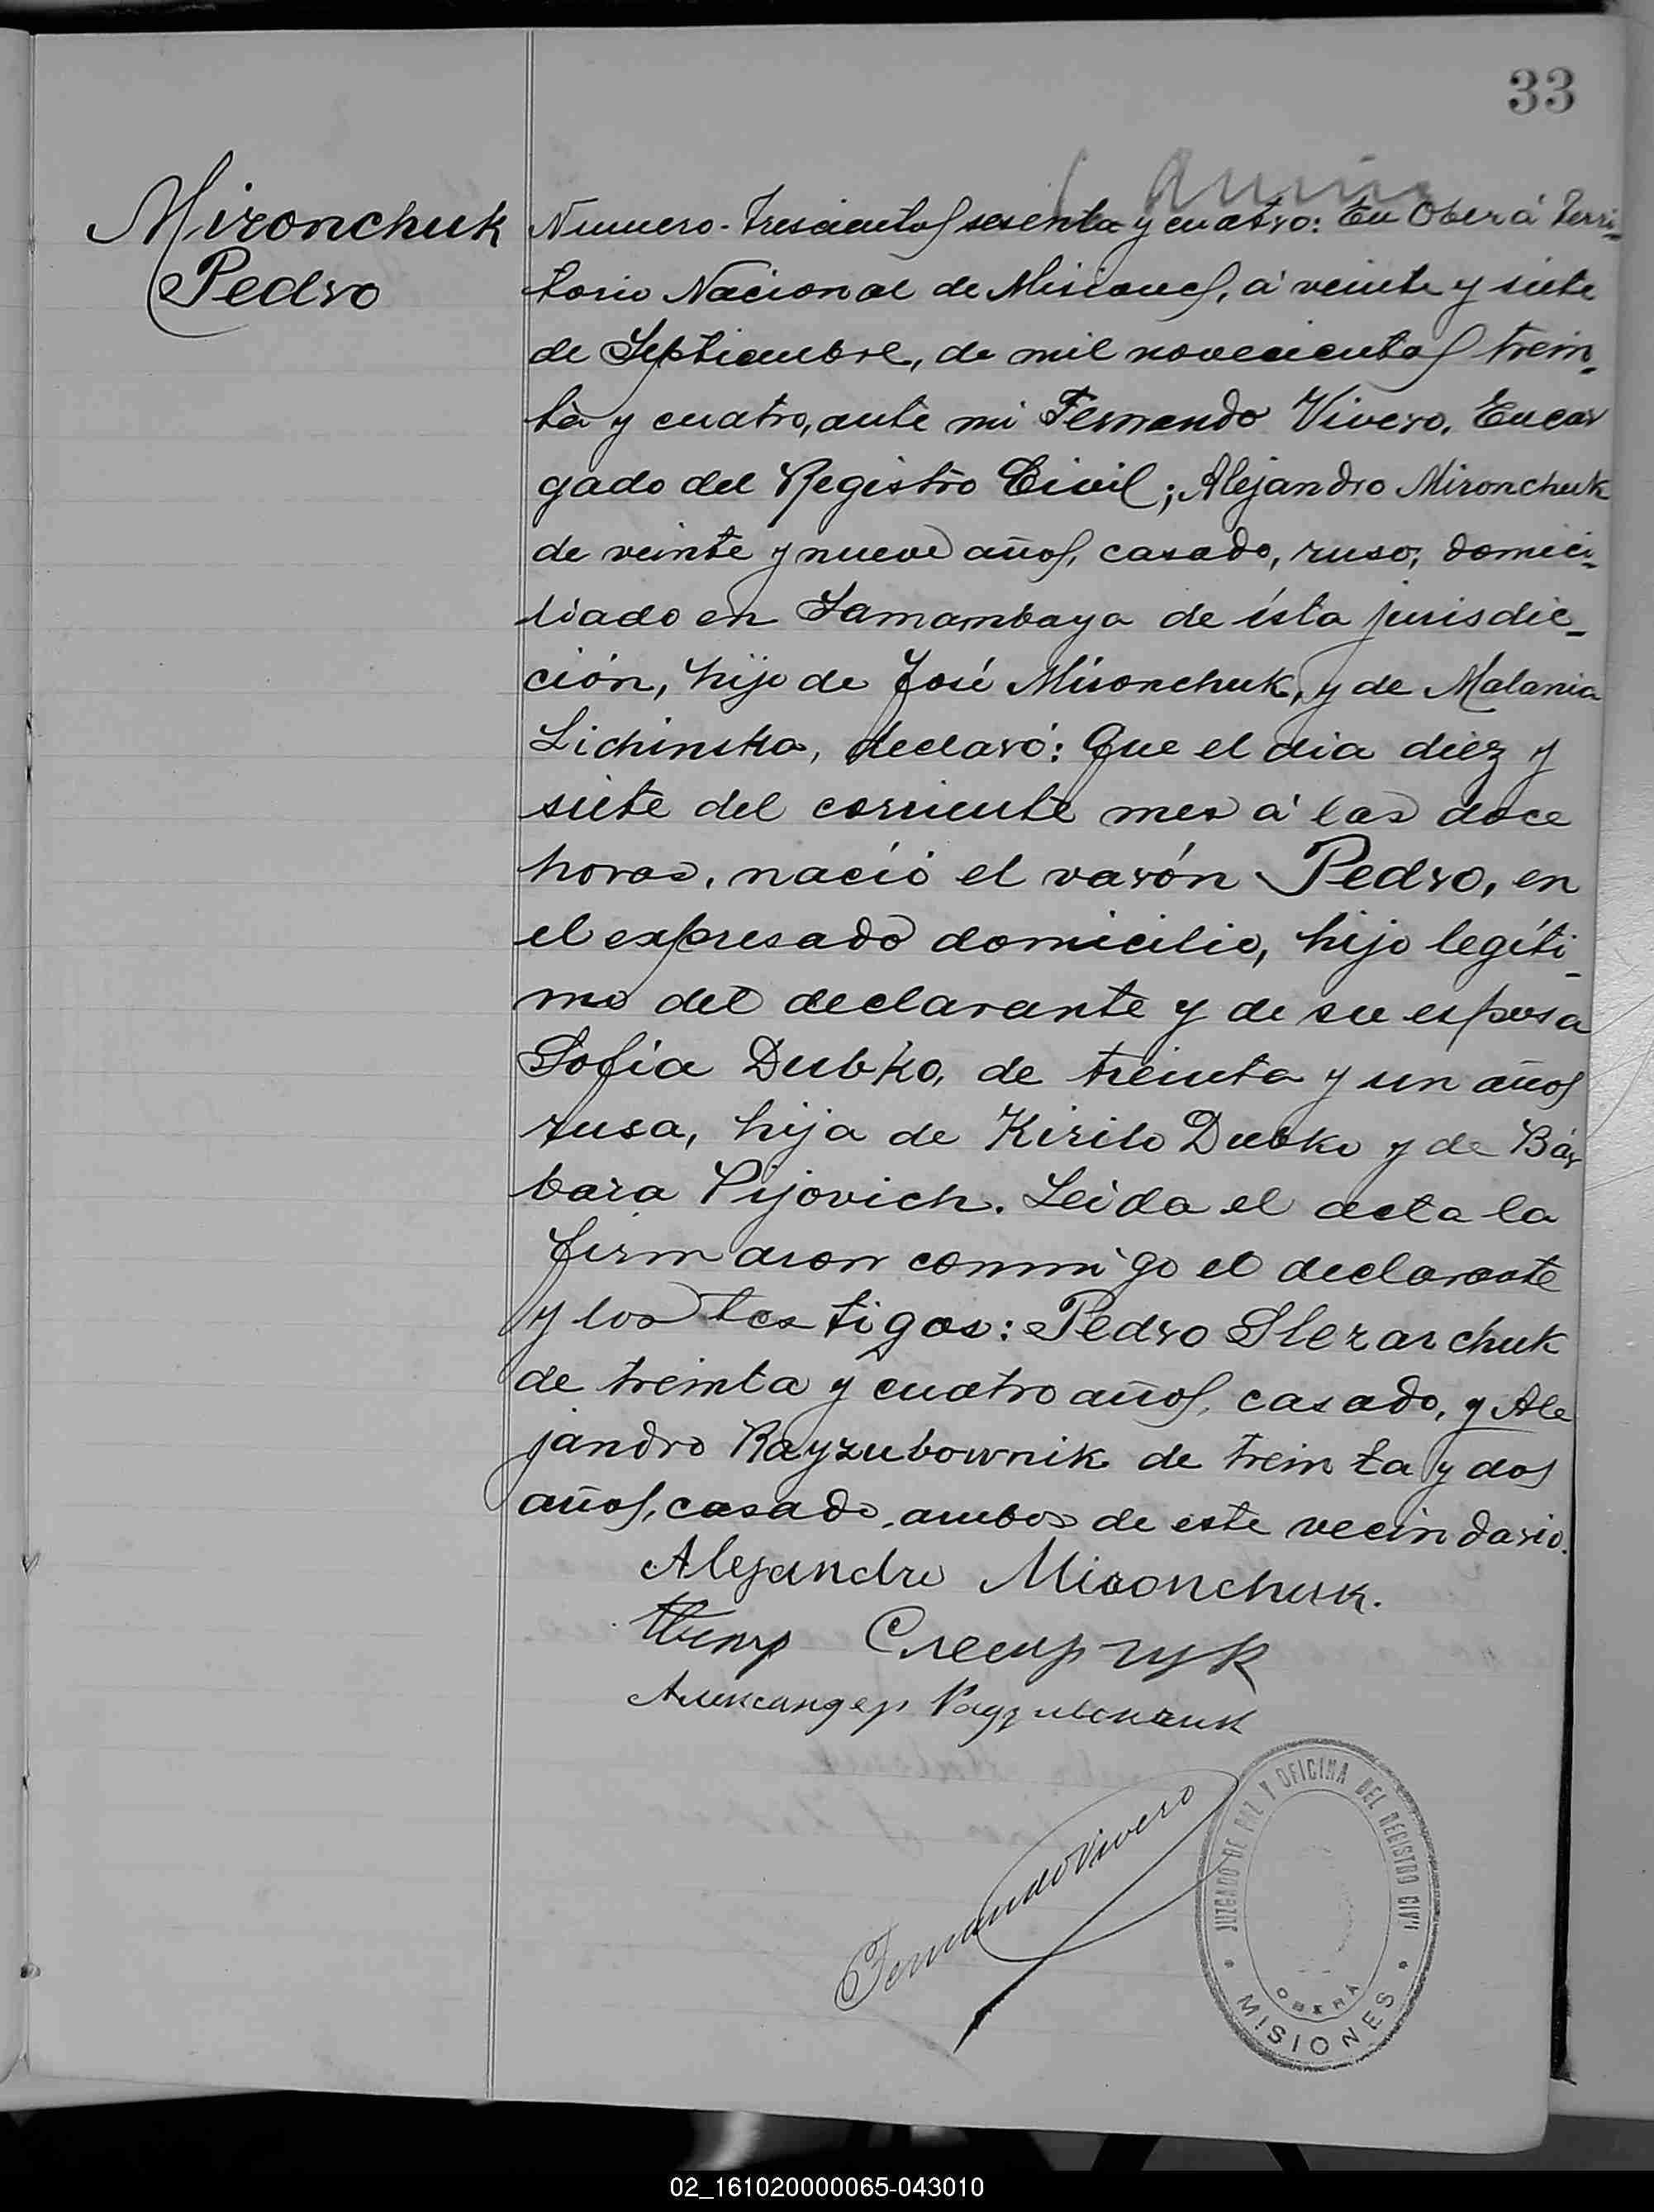 33
Mironchuk
Pedro
Numero-Trescientos sesenta y cuatro: En Oberá Terri-
torio Nacional de Misiones, á veinte y siete
de Septiembre, de mil novecientos trein-
ta y cuatro, ante mi Fernando Vivero, Encar
gado del Registro Civil; Alejandro Mironchuk
de veinte y nueve años, casado, ruso, domici-
liado en Samambaya de ésta jurisdic-
ción, hijo de José Mironchuk, y de Malania
Lichinska, declaró: Que el dia diez y
siete del corriente mes á las doce
horas, nació el varón Pedro, en
el expresado domicilio, hijo legíti-
mo del declarante y de su esposa
Sofía Dubko, de treinta y un años
rusa, hija de Kirilo Dubko y de Bár
bara Pijovich. Leida el acta la
firmaron conmigo el declarante
y los testigos: Pedro Slezarchuk
de treinta y cuatro años, casado, y Ale
jandro Rayzubownik de treinta y dos
años, casado, ambos de este vecindario.
Alejandro Mironchuk.
Александер
Fernando Vivero
JUZGADO DE PAZ Y OFICINA DEL REGISTRO CIVIL
OBERÁ
MISIONES
02_161020000065-043010